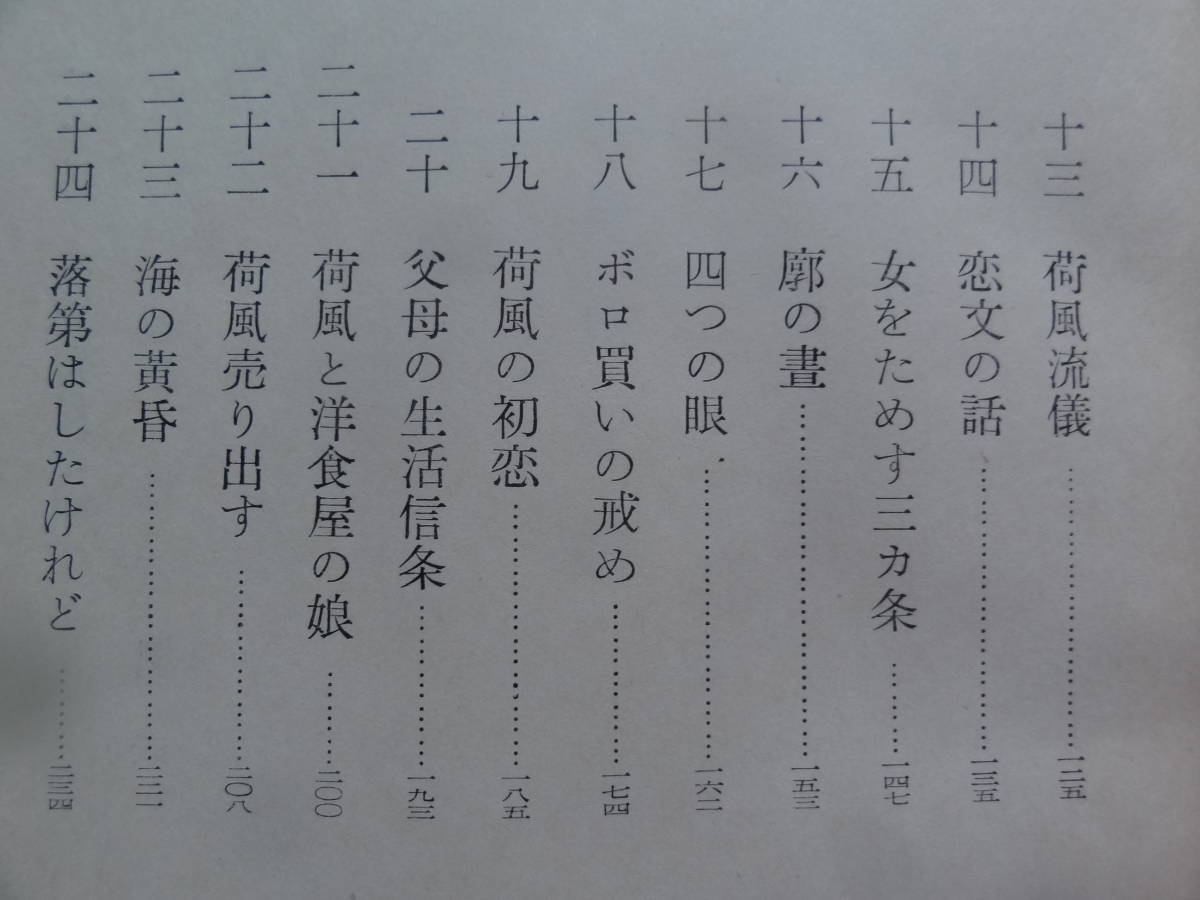 十三 荷風流儀 ………………… 一二五
十四 恋文の話 ………………… 一三五
十五 女をためす三カ条 ……… 一四七
十六 廓の晝 …………………… 一五三
十七 四つの眼 ………………… 一六二
十八 ボロ買いの戒め ………… 一七四
十九 荷風の初恋 ……………… 一八五
二十 父母の生活信条 ………… 一九三
二十一 荷風と洋食屋の娘 …… 二〇〇
二十二 荷風売り出す ………… 二〇八
二十三 海の黄昏 ……………… 二二一
二十四 落第はしたけれど …… 二三四